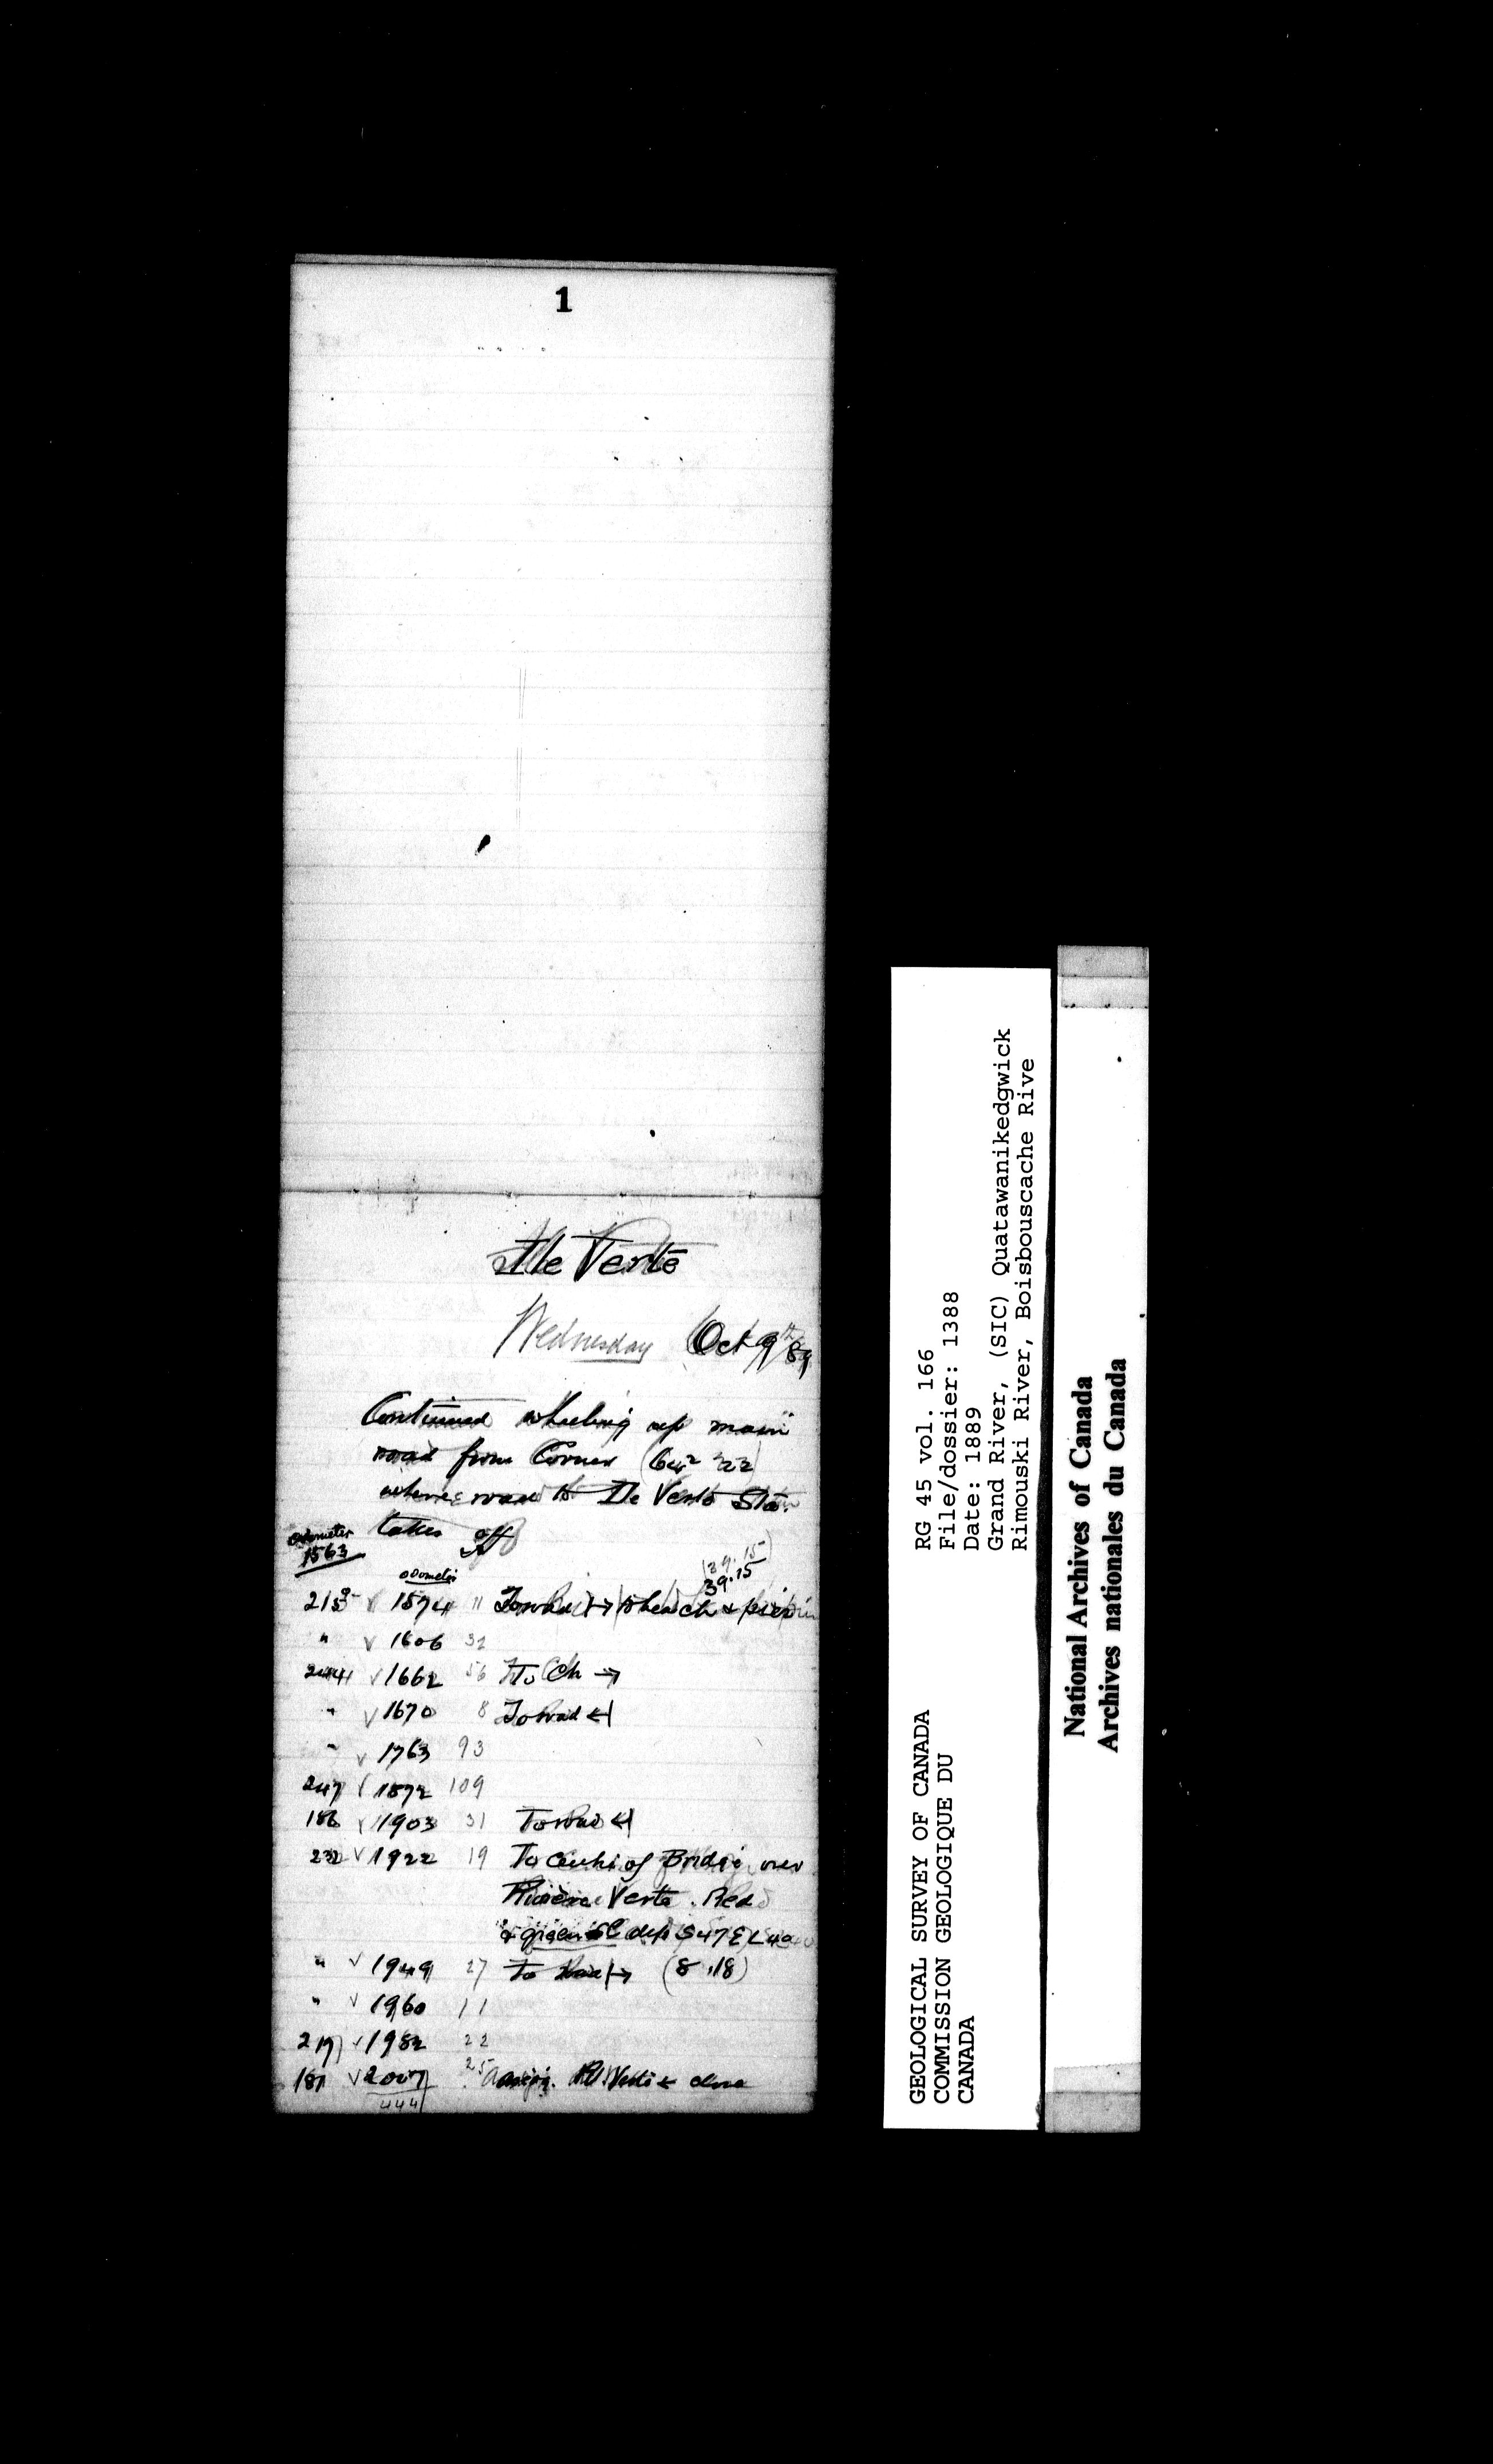 1
Ile Verte
Wednesday Oct 9th/89
Continued wheeling up main
road from Corner
where road to Ile Verte Sta.
takes off
odometer
1563
odometer
(39.15)
39.15
213 √ 1574 11 To road |→
" √ 1606 32
244 √ 1662 56 To Ch →
" √ 1670 8 To road ←|
" √ 1763 93
247 √ 1872 109
186 √ 1903 31 To road ←|
232 √ 1922 19 To Centre of Bridge over
Rivière Verte. Red
& green dip S47E L40
" √ 1949 27 To Road |→ (8.18)
" √ 1960 11
219 √ 1982 22
181 √ 2007 25 Verte ← close
444
GEOLOGICAL SURVEY OF CANADA
COMMISSION GEOLOGIQUE DU
CANADA
RG 45 vol. 166
File/dossier: 1388
Date: 1889
Grand River, (SIC) Quatawanikedgwick
Rimouski River, Boisbouscache Rive
National Archives of Canada
Archives nationales du Canada